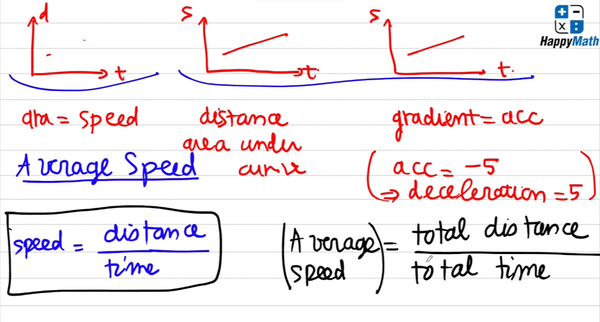 d
s
s
HappyMath
t
t
t.
gra = speed
distance
area under
curve
gradient = acc
Average Speed
acc = -5
⇒ deceleration = 5
speed = distance / time
Average speed = total distance / total time